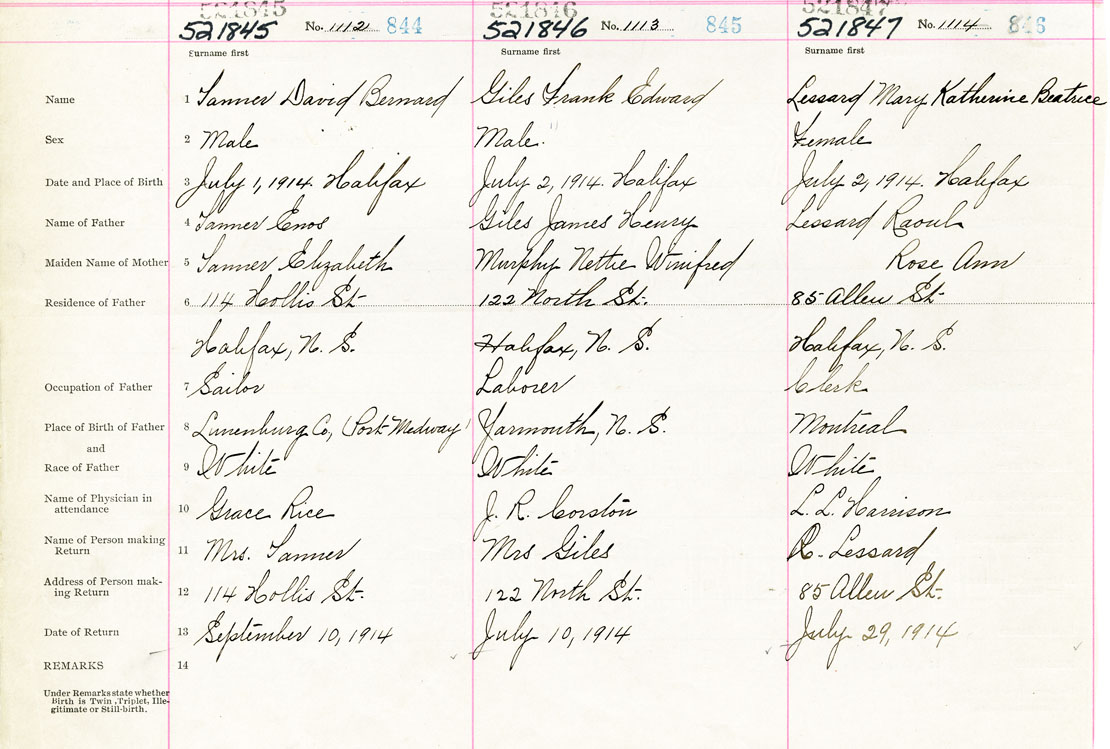 521845 521846 521847
521845 No. 1112 844 521846 No. 1113 845 521847 No. 1114 846
Surname first Surname first Surname first
Name 1 Tanner David Bernard Giles Frank Edward Lessard Mary Katherine Beatrice
Sex 2 Male Male. Female
Date and Place of Birth 3 July 1, 1914. Halifax July 2, 1914. Halifax July 2, 1914. Halifax
Name of Father 4 Tanner Enos Giles James Henry Lessard Raoul
Maiden Name of Mother 5 Tanner Elizabeth Murphy Nettie Winifred Rose Ann
Residence of Father 6 114 Hollis St. 122 North St. 85 Allen St
Halifax, N. S. Halifax, N. S. Halifax, N. S.
Occupation of Father 7 Sailor Laborer Clerk
Place of Birth of Father 8 Lunenburg Co, (Port Medway) Yarmouth, N. S. Montreal
and
Race of Father 9 White White White
Name of Physician in
attendance 10 Grace Rice J. R. Corston L. L. Harrison
Name of Person making
Return 11 Mrs. Tanner Mrs Giles R. Lessard
Address of Person mak-
ing Return 12 114 Hollis St. 122 North St. 85 Allen St.
Date of Return 13 September 10, 1914 July 10, 1914 July 29, 1914
REMARKS 14
Under Remarks state whether
Birth is Twin, Triplet, Ille-
gitimate or Still-birth.